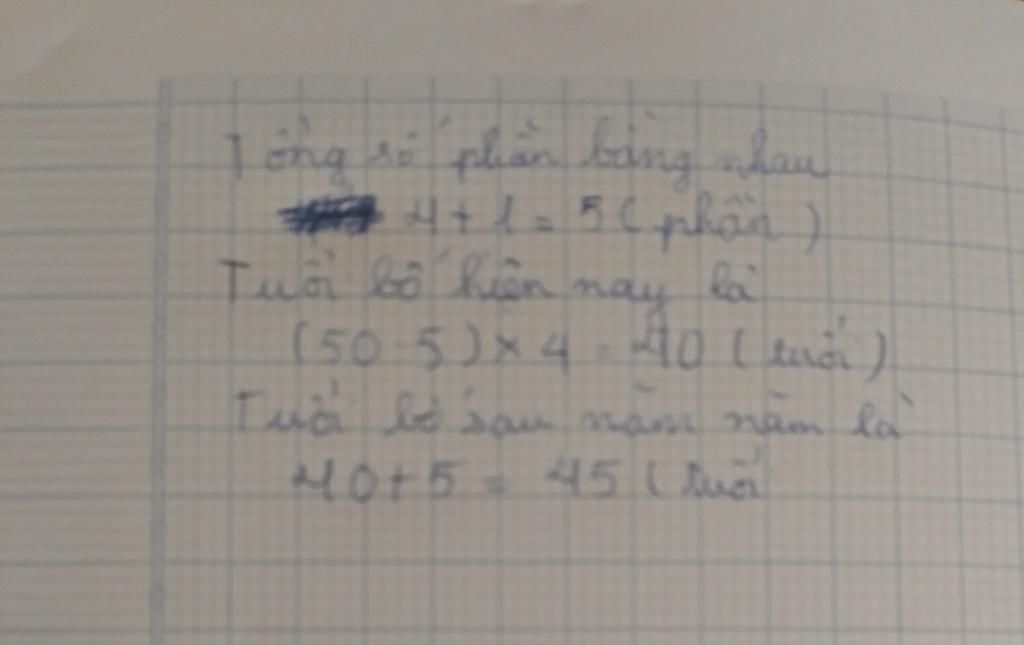 Tổng số phần bằng nhau
4 + 1 = 5 ( phần )
Tuổi bố hiện nay là
( 50 : 5 ) × 4 = 40 ( tuổi )
Tuổi bố sau năm năm là
40 + 5 = 45 ( tuổi